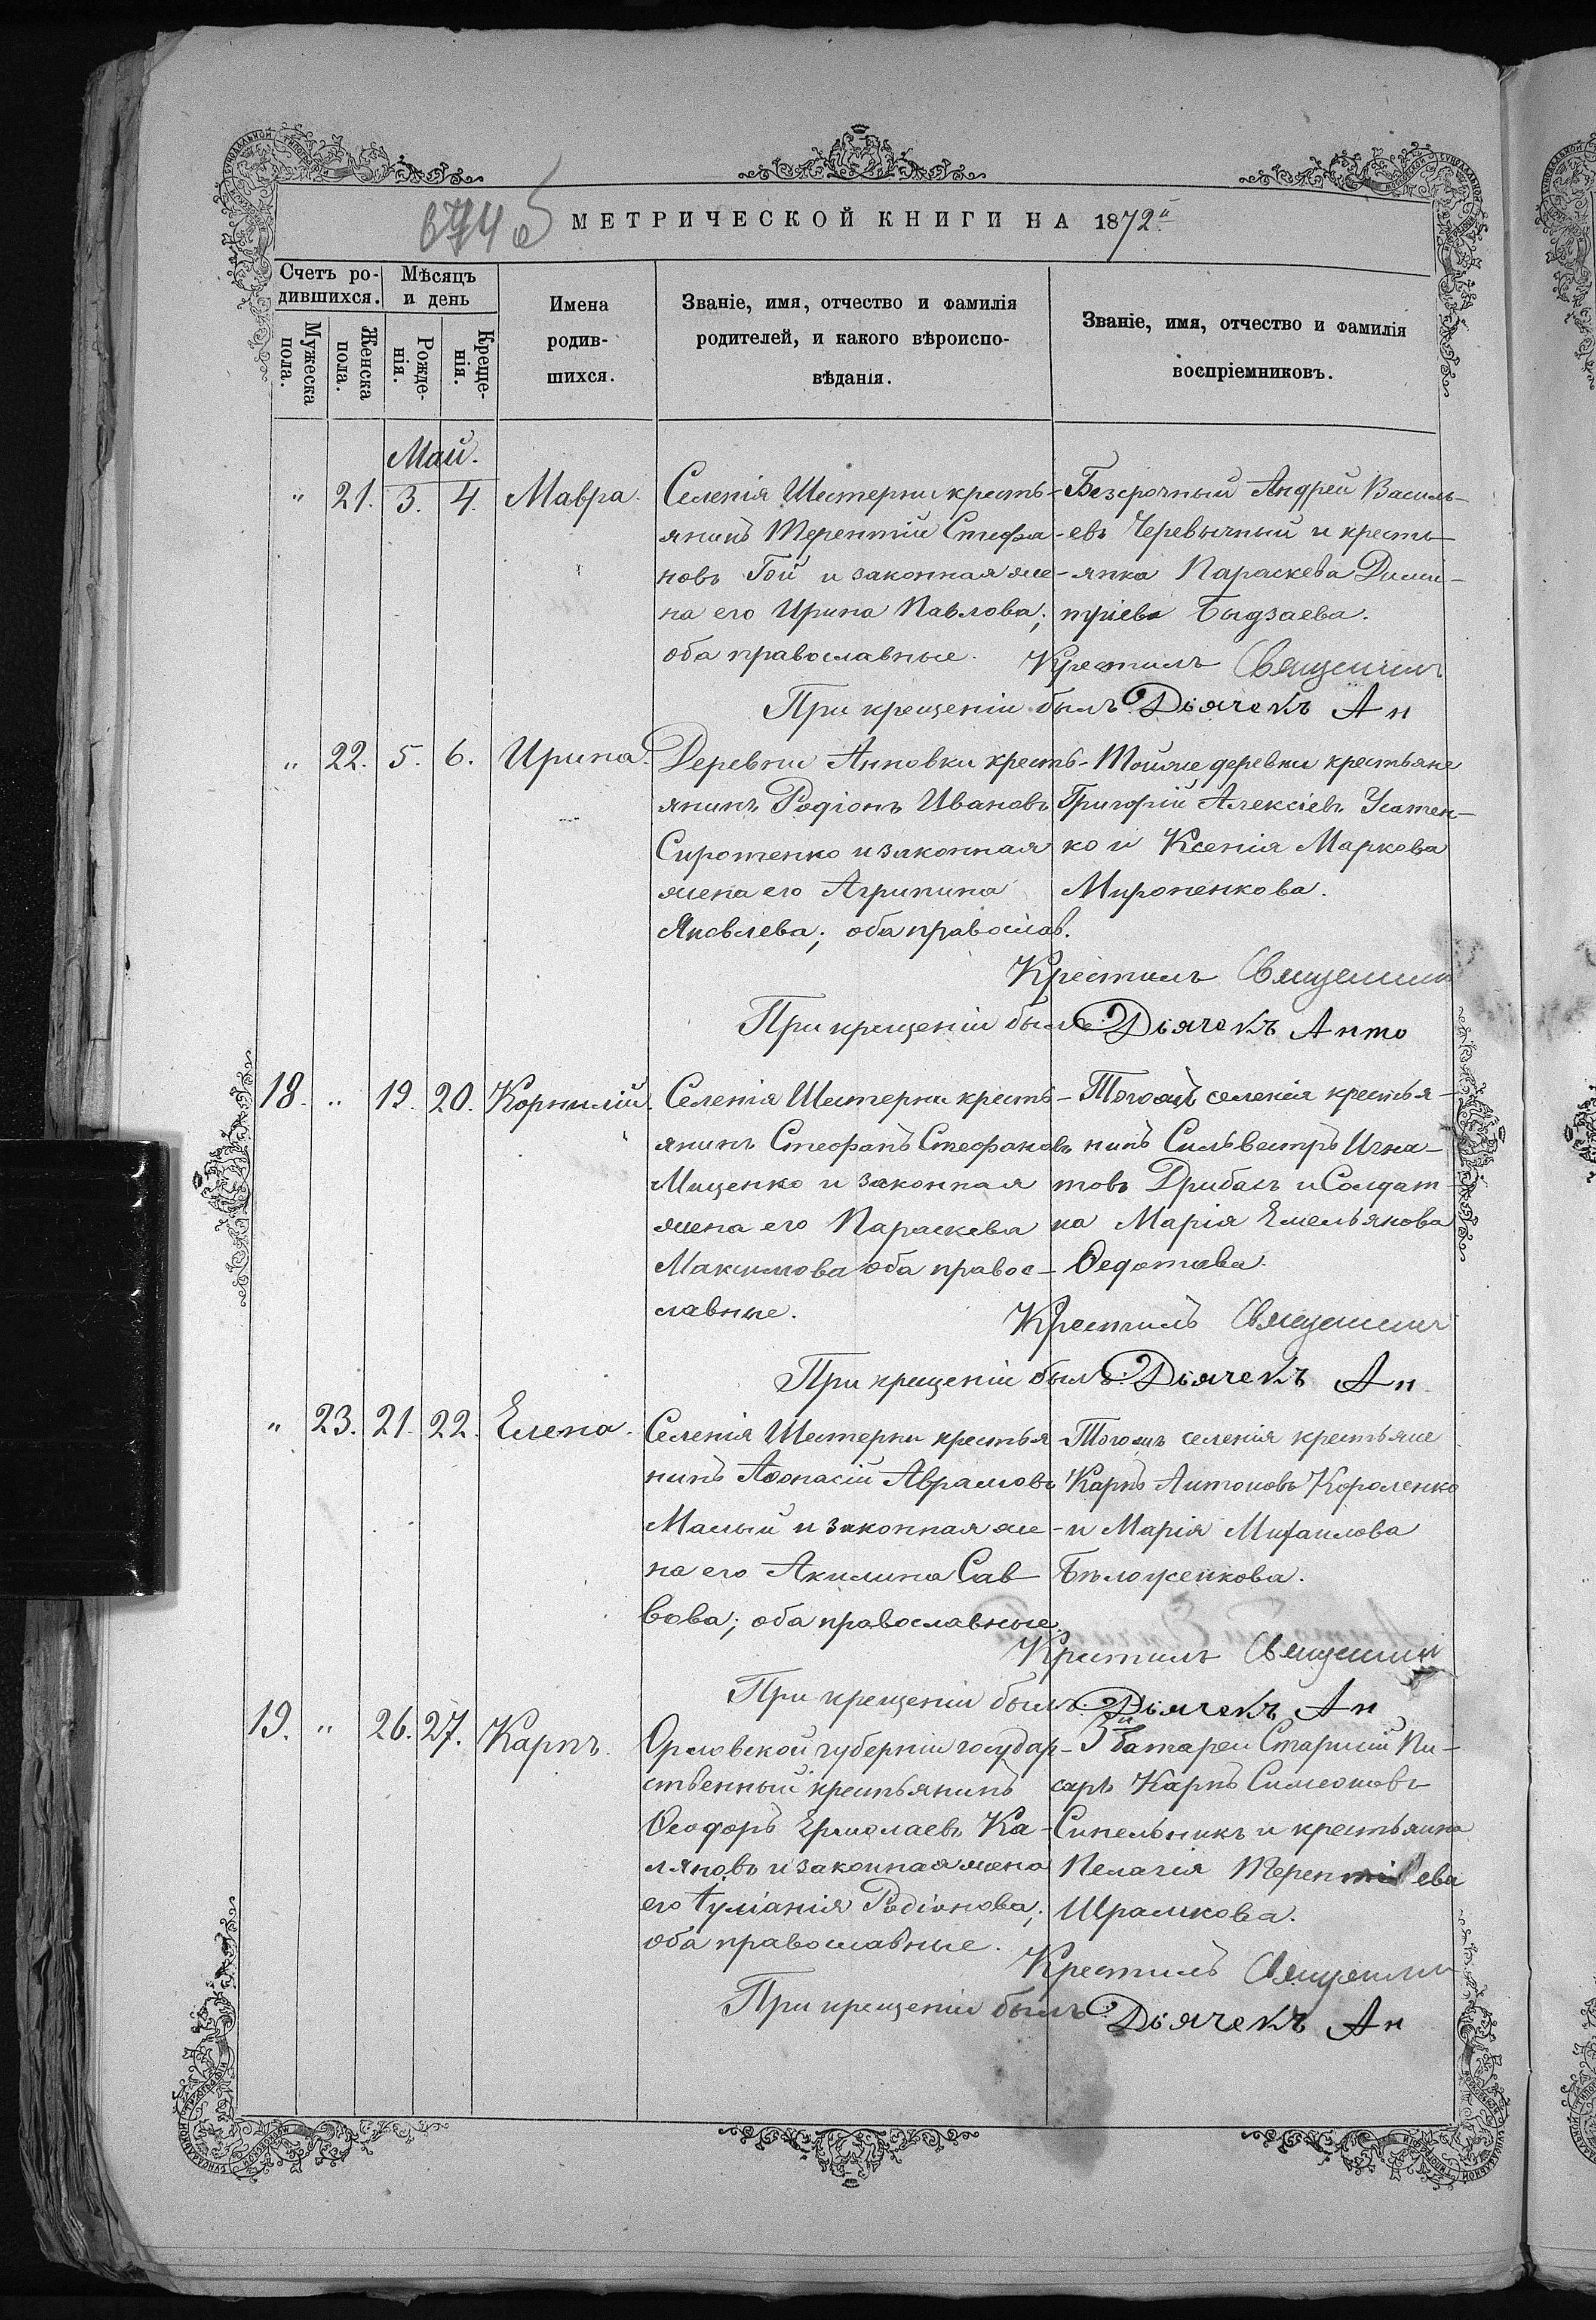 МЕТРИЧЕСКОЙ КНИГИ НА 1872й
Счетъ ро-
дившихся.
Мѣсяцъ
и день
Мужеска
пола.
Женска
пола.
Рожде-
нія.
Креще-
нія.
Имена
родив-
шихся.
Званіе, имя, отчество и фамилія
родителей, и какого вѣроиспо-
вѣданія.
Званіе, имя, отчество и фамилія
воспріемниковъ.
Май.
" 21. 3. 4. Мавра.
Селенія Шестерни кресть-
янинъ Терентій Стефа-
новъ Гой и законная же-
на его Ирина Павлова;
оба православные.
Безсрочный Андрей Василь-
евъ Черевычный и кресть-
янка Параскева Дими-
тріева Быдзаева.
Крестилъ Священник
При крещеніи былъ: Дьячекъ Ан
" 22. 5. 6. Ирина.
Деревни Анновки кресть-
янинъ Родіонъ Ивановъ
Сиротенко и законная
жена его Агрипина
Яковлева; оба православ.
Тойже деревни крестьяне
Григорій Алексіевъ Усатен-
ко и Ксенія Маркова
Мироненкова.
Крестилъ Священник
При крещеніи былъ: Дьячекъ Анто
18. " 19. 20. Корнилій.
Селенія Шестерни кресть-
янинъ Стефанъ Стефановъ
Мищенко и законная
жена его Параскева
Максимова оба правос-
лавные.
Тогожъ селенія крестья-
нинъ Сильвестръ Игна-
товъ Дрибасъ и Солдат-
ка Марія Емельянова
Ѳедотова.
Крестилъ Священник
При крещеніи былъ: Дьячекъ Ан
" 23. 21. 22. Елена.
Селенія Шестерни крестья
нинъ Аѳонасій Аврамовъ
Малый и законная же-
на его Акилина Сав
вова; оба православные.
Тогожъ селенія крестьяне
Карпъ Антоновъ Короленко
и Марія Михаилова
Бѣложенкова.
Крестилъ Священник
При крещеніи былъ: Дьячекъ Ан
19. " 26. 27. Карпъ.
Орловской губерніи государ-
ственный крестьянинъ
Ѳеодоръ Ермолаевъ Ка-
ляновъ и законная жена
его Іуліанія Родіонова;
оба православные.
батареи Старшій Пи-
сарь Карпъ Симеоновъ
Синельникъ и крестьянка
Пелагія Терентіева
Шрамкова.
Крестилъ Священник
При крещеніи былъ: Дьячекъ Ан